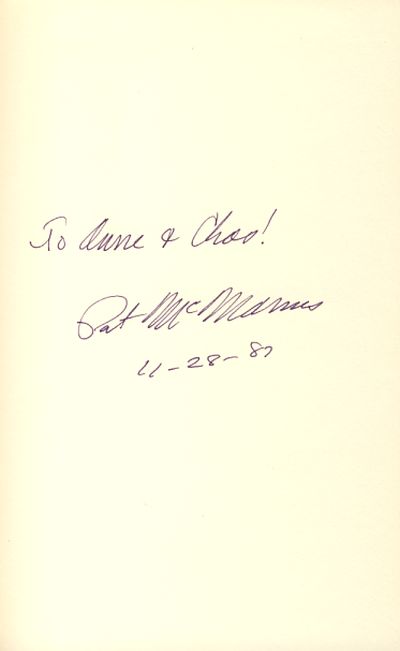 To Anne & Chas!
Pat McManus
11-28-87